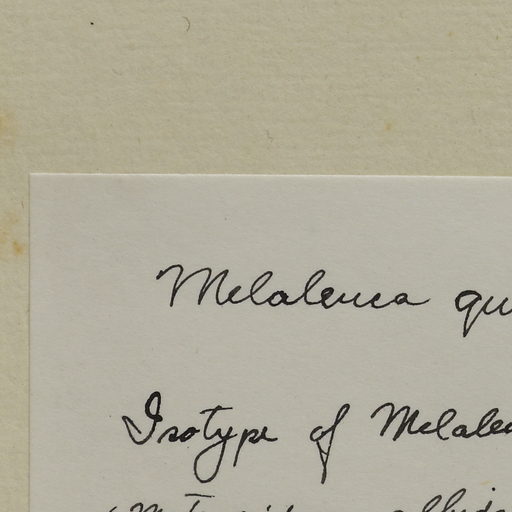 Melaleuca qu
Isotype of Melaleu